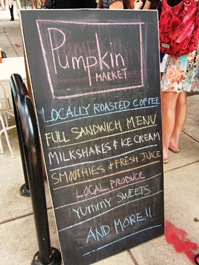 Pumpkin
MARKET
LOCALLY ROASTED COFFEE
FULL SANDWICH MENU
MILKSHAKES & ICE CREAM
SMOOTHIES & FRESH JUICE
LOCAL PRODUCE
YUMMY SWEETS
AND MORE!!